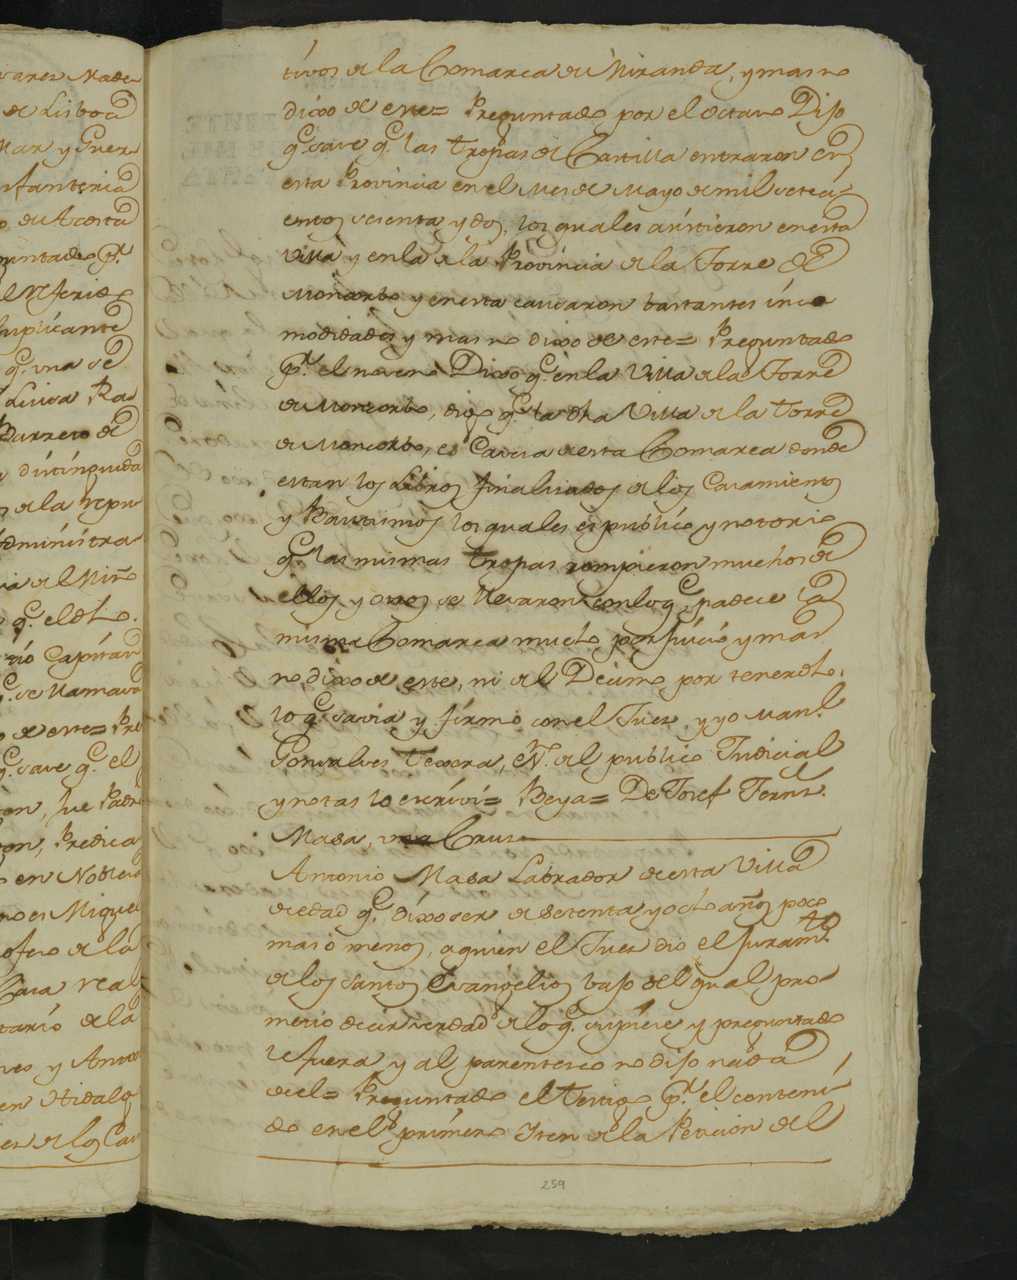 vares Made
de Lisboa
Mar y Guer
nfanteria
o de Acosta
guntado pr.
el referido
suplicante
q. una de
Luisa Ra
Barrero de
distinguida
o de la repu
administra
ia del Niño
q. el dho.
rio Capitan
q. se llamava
o de este= Pre
q. save q. el
on, fue Padre
on, Predica
o en Noblesa
no es Miguel
ofeso de la
Casa real
tario de la
res y Anto
en Hidalgo
es de los Cav
tivos de la Comarca de Miranda, y mas no
dixo de este= Preguntado por el octavo Dijo
q. save q. las tropas de Castilla entraron en
esta Provincia en el Mes de Mayo de mil setesi-
entos sesenta y dos, los quales asistieron en esta
Villa y en la de la Provincia de la Torre de
Moncorbo y en esta causaron bastantes inco
modidades y mas no dixo de este= Preguntado
pr. el noveno Dixo q. en la Villa de la Torre
de Moncorbo, digo q. la dha Villa de la Torre
de Moncorbo, es Cavesa de esta Comarca donde
estan los Libros finalisados de los Casamientos
y Bautismos los quales es publico y notorio
q. las mismas tropas rompieron muchos de
ellos y otros se llevaron con lo q. padece la
misma Comarca mucho perjuicio y mas
no dixo de este, ni del Decimo por tener dho.
lo q. savia y firmo con el Jues, y yo Manl.
Gonsalves Texera, Es.no del publico Judicial
y notas lo escrivi= Beya= De Josef Fernz.
Masa, una Crus
Antonio Masa Labrador de esta Villa
de edad q. dixo ser de setenta y ocho años poco
mas o menos, a quien el Jues dio el juramto.
de los Santos Evangelios bajo del qual pro-
metio decir verdad de lo q. supiese y preguntado
le fuera y al parentesco no dijo nada
de el= Preguntado el Testigo pr. el conteni-
do en el primero Iten de la Peticion del
259